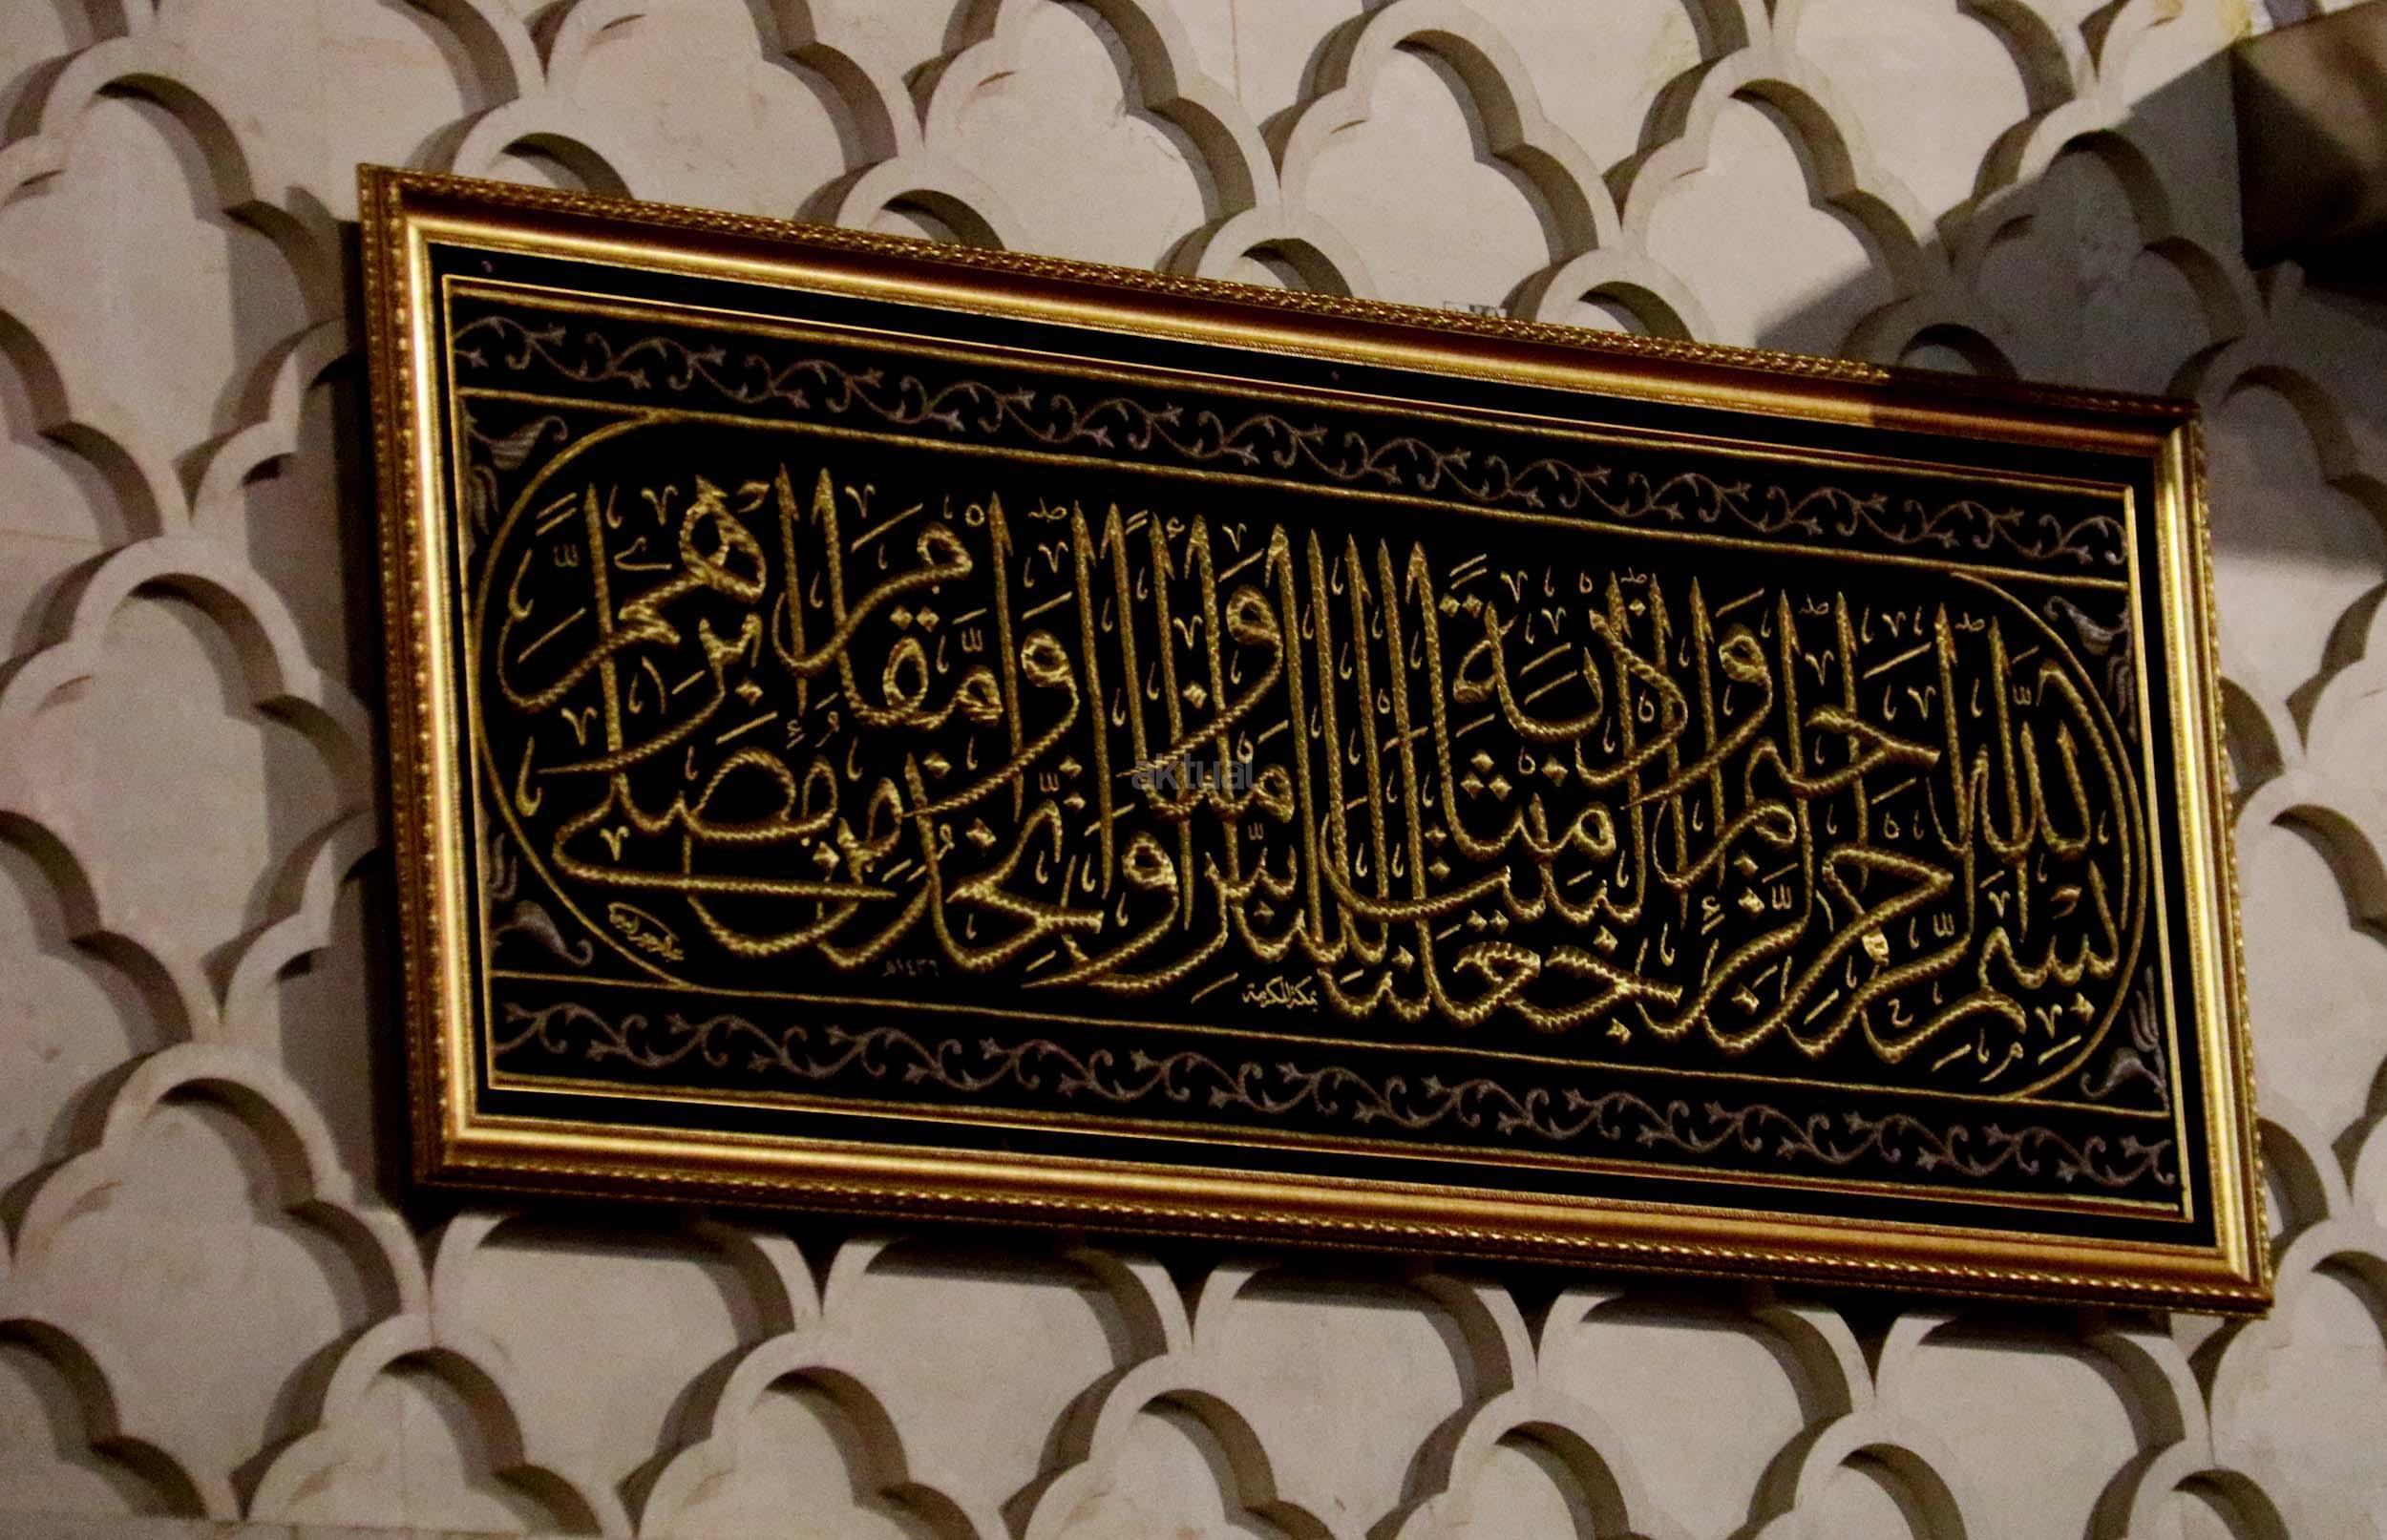 بِسْمِ ٱللَّهِ ٱلرَّحْمَٰنِ ٱلرَّحِيمِ وَإِذْ جَعَلْنَا ٱلْبَيْتَ مَثَابَةً لِّلنَّاسِ وَأَمْنًا وَٱتَّخِذُوا مِن مَّقَامِ إِبْرَٰهِيمَ مُصَلًّى
بمكة المكرمة
١٤٣٦هـ
aktual